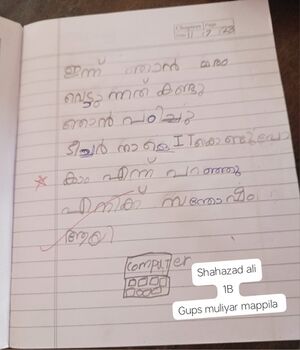 ഇന്ന് ഞാൻ മരം
വെട്ടുന്നത് കണ്ടു
ഞാൻ പഠിച്ചു
ടീച്ചർ നാളെ IT കൊണ്ടുപോ
കാം എന്ന് പറഞ്ഞു
എനിക് സന്തോഷം
ആയി
computer
Shahazad ali
1B
Gups muliyar mappila